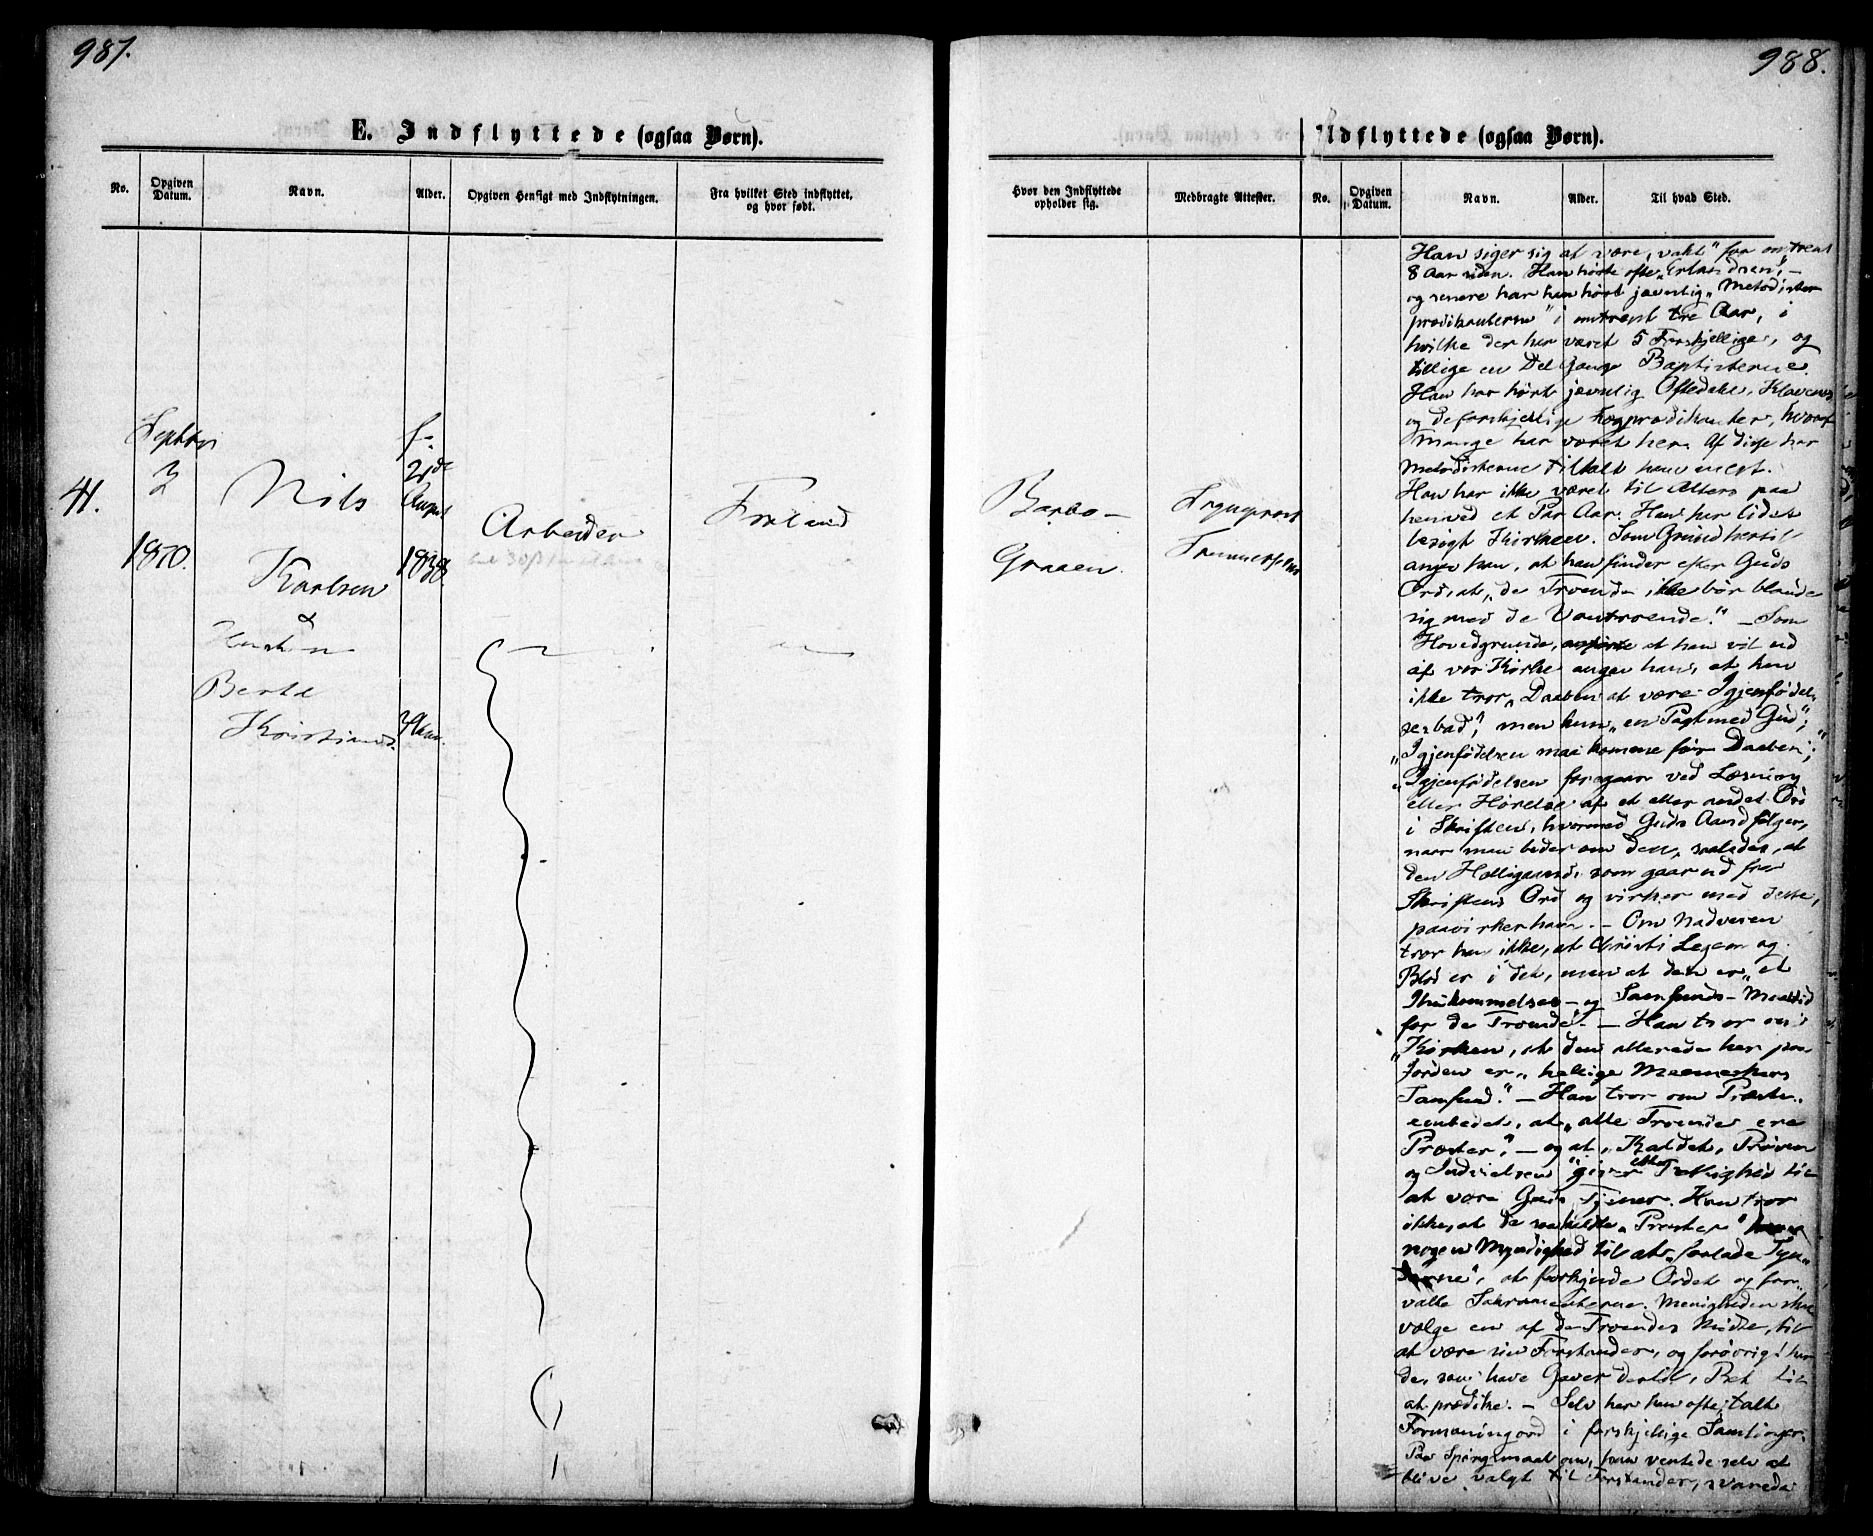 987.
988.
E. Indflyttede (ogsaa Børn).
Udflyttede (ogsaa Børn).
No.
Opgiven Datum.
Navn.
Alder.
Opgiven Hensigt med Indflytningen.
Fra hvilket Sted indflyttet, og hvor født.
Hvor den Indflyttede opholder sig.
Medbragte Attester.
No.
Opgiven Datum.
Navn.
Alder.
Til hvad Sted.
41.
3
1870.
Nils
Karlsen
&
Berte
f.
August
1838
Arbeider
Barbo
Graaen.
Han siger sig at være „vakt" for omtrent
8 Aar siden. Han hørte ofte „Erlandsen", –
og senere har han hørt jævnlig „Metodister
prædikanterne" i omtrent tre Aar, i
hvilke der har været 5 Forskjellige, og
tillige en Del Gange Baptisterne.
Han har hørt jævnlig Oftedahl, Klavenes
og de forskjellige Fogprædikanter, hvoraf
mange har været her. Af disse har
Metodisterne tiltalt ham mest.
Han har ikke været til Alters paa
henved et Par Aar. Han har lidet
besøgt Kirken. Som Grund hertil
anger han, at han finder efter Guds
Ord at „de Troende ikke bør blande
sig med de Vantroende." – Som
Hovedgrunde, at han vil ud
af vor Kirke anger han, at han
ikke tror „Daaben at være Igjenfødel-
sesbad", men kun „en Pagt med Gud",
„Igjenfødelsen maa komme før Daaben",
„Igjenfødelsen foregaar ved Læsning
eller Hørelse af et eller andet Ord
i Skriften, hvormed Guds Aand følger,
naar man beder om den, saaledes, at
den Helligaand, som gaar ud fra
Skriftens Ord og virker med dette,
paavirker ham. – Om Nadveren
tror han ikke, at Christi Legem og
Blod er i det, men at den er „et
Ihukommelses- og Samfunds-Maaltid
for de Troende". – Han tror om
„Kirken, at den allerede her paa
Jorden er „hellige Menneskers
Samfund." – Han tror om Præste-
embedet, at „alle Troende ere
Præster", – og at „Kaldet, Prøven
og Indvielsen" giver Rettighed til
at være Guds Tjener. Han tror
ikke, at de saakaldte „Præster"
nogen Myndighed til at „forlade Syn-
derne", at forkynde Ordet og for-
valte Sakramenterne. Menigheden skal
vælge en af de Troendes Midte, til
at være sin Forstander, og forøvrigt har
de, som have Gaver dertil, Ret til
at prædike. – Selv har han ofte talt
Formaningsord i forskjellige Samlinger.
Paa Spørgsmaal om, han ventede selv at
blive valgt til Forstander, svarede